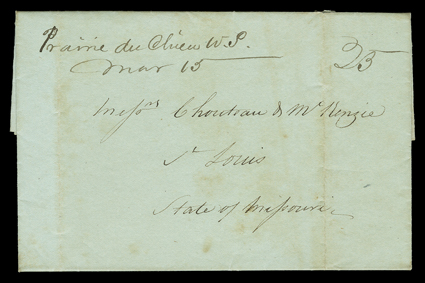 Prairie du Chien W.T.
Mar 15
25
Messrs Chouteau & McKenzie
St Louis
State of Missouri